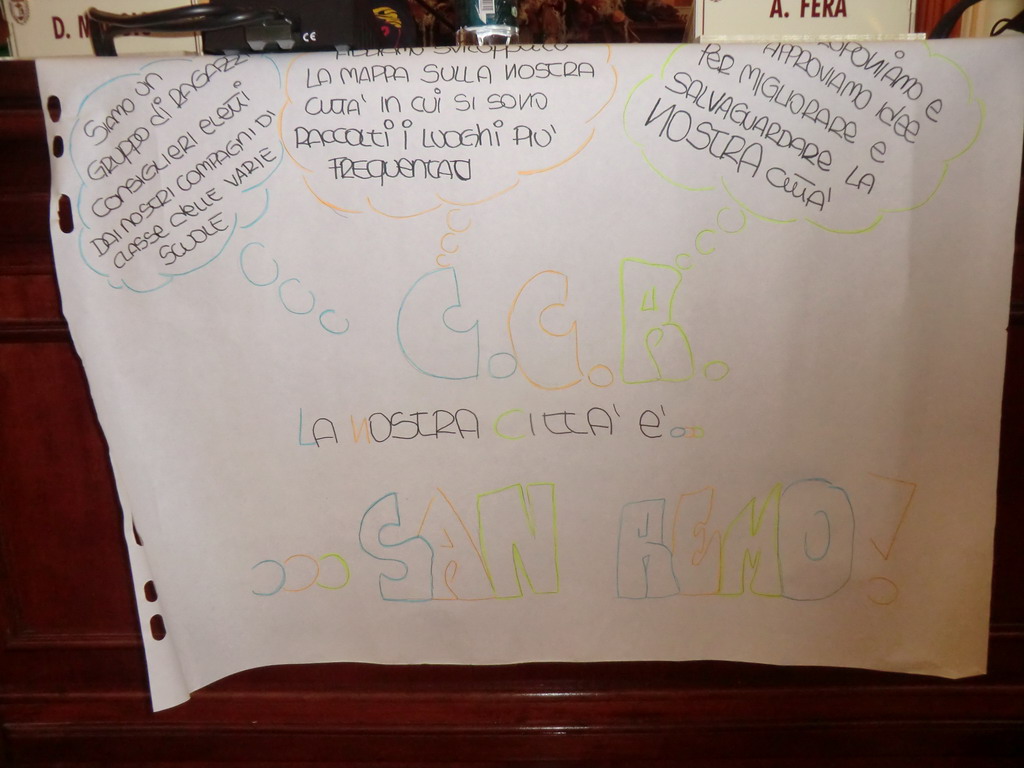 A. FERA
CE
Siamo un
GRUPPO di RAGAZZI
CONSIGLIERI ELETTI
DAI NOSTRI COMPAGNI DI
CLASSE DELLE VARIE
SCUOLE
LA MAPPA SULLA NOSTRA
CITTA' IN CUI SI SONO
RACCOLTI I LUOGHI PIU'
FREQUENTATI
APPROVIAMO IDEE
PER MIGLIORARE E
SALVAGUARDARE LA
NOSTRA CITTA'
C.C.R.
LA NOSTRA CITTA' E'...
...SAN REMO!